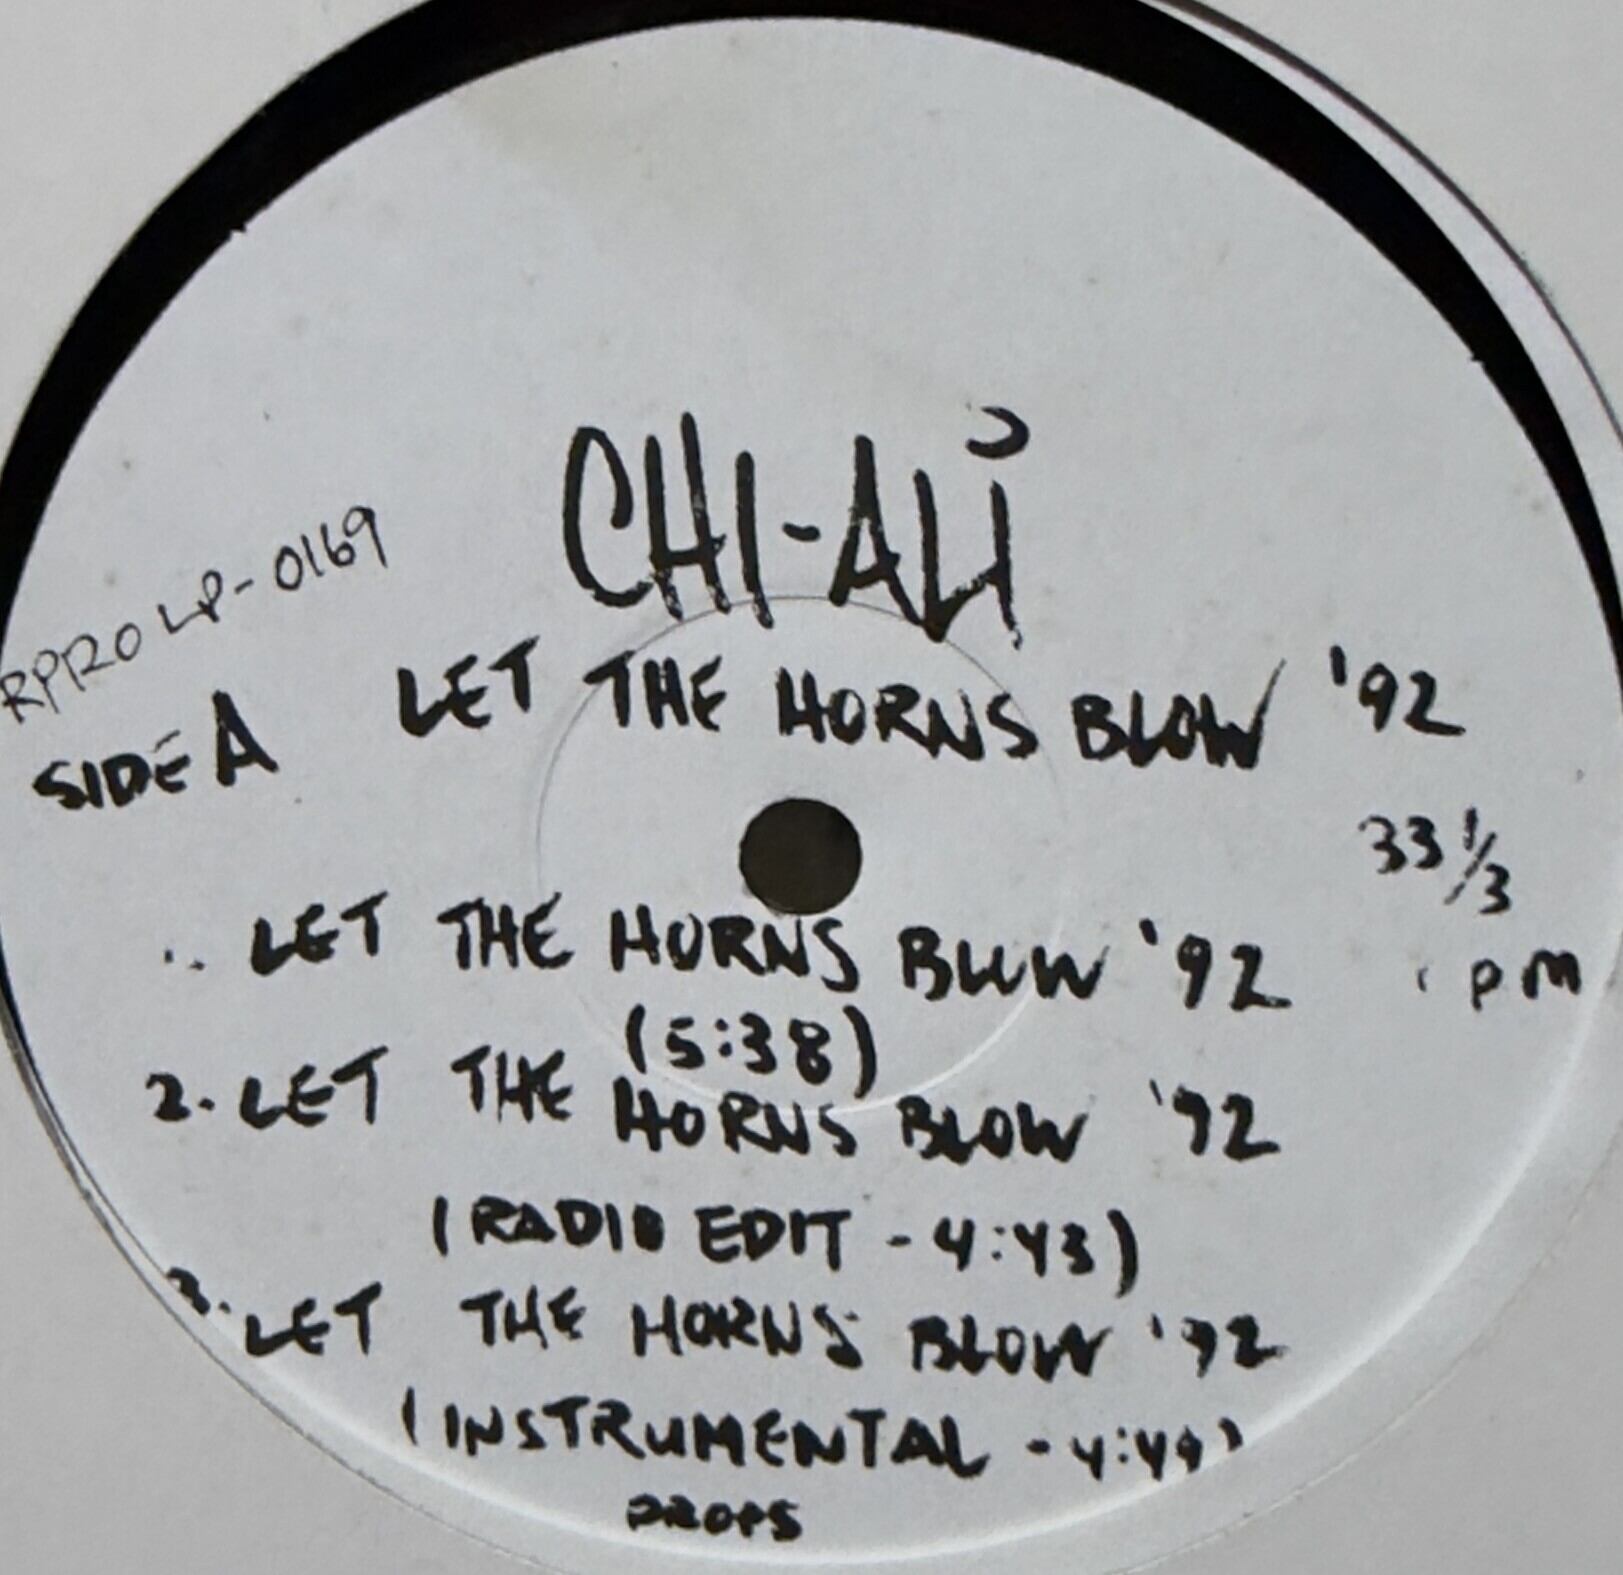 CHI-ALI
RPRO LP-0169
SIDE A LET THE HORNS BLOW '92
33 1/3
rpm
1. LET THE HORNS BLOW '92
(5:38)
2. LET THE HORNS BLOW '92
(RADIO EDIT - 4:43)
3. LET THE HORNS BLOW '92
(INSTRUMENTAL - 4:49)
DROPS